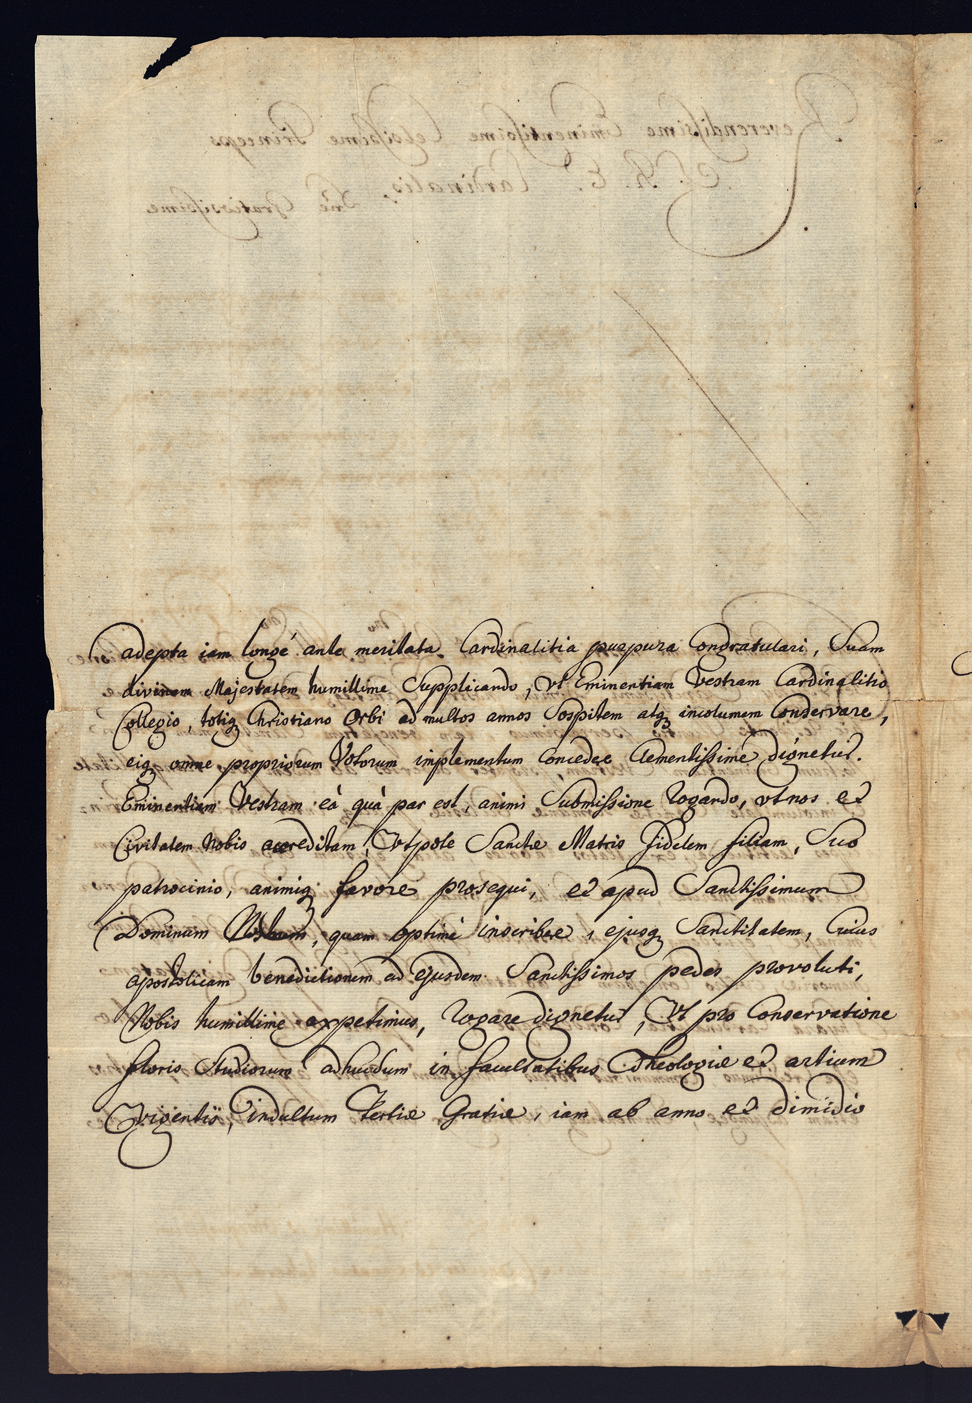 adepta iam longé ante meritata Cardinalitia purpura Congratulari, Suam
divinam Majestatem humillime Supplicando, Vt Eminentiam Vestram Cardinalitio
Collegio, totiq₃ Christiano Orbi ad multos annos Sospitem atq₃ incolumem Conservare,
eiq₃ omne propriorum Votorum implementum Concedere Clementissimé dignetur.
Eminentiam Vestram eà quà par est, animi Submissione Rogando, vt nos et
Civitatem Nobis accreditam, Vtpote Sanctæ Matris fidelem filiam, Suo
patrocinio, animiq₃ favore prosequi, et apud Sanctissimum
Dominum Nostrum, quam optimé inscribere, ejusq₃ Sanctitatem, Cuius
apostolicam benedictionem ad ejusdem Sanctissimos pedes provoluti,
Nobis humillimé expetimus, Rogare dignetur, Vt pro Conservatione
floris Studiorum adhucdum in facultatibus Theologiæ et artium
Vigentis, indultum Tertiæ Gratiæ, iam ab anno et dimidio
Reverendissime Eminentissime Celsissime Princeps
S. R. E. Cardinalis
Dñe Gratiosissime